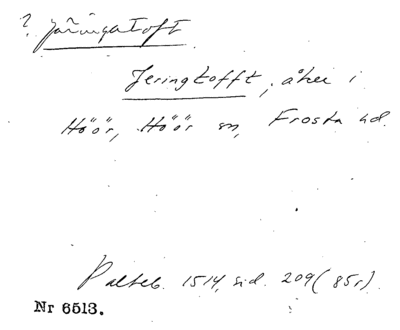 ? Järingatoft
Jeringtofft, åker i
Höör, Höör sn, Frosta hd.
Palteb. 1514, sid. 209 (85r).
Nr 6513.